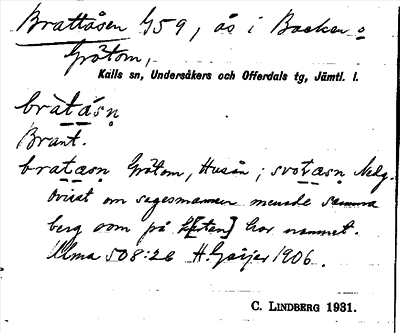 Brattåsen G59, ås i Backen o
Gråtom,
Kalls sn, Undersåkers och Offerdals tg, Jämtl. l.
bràtásn
Brant.
bratasn Gråtom, Huså; svotasn Nedg.
Ovisst om sagesmannen menade samma
berg som på k[artan] har namnet.
Ulma 508:26 H. Geijer 1906.
C. LINDBERG 1931.